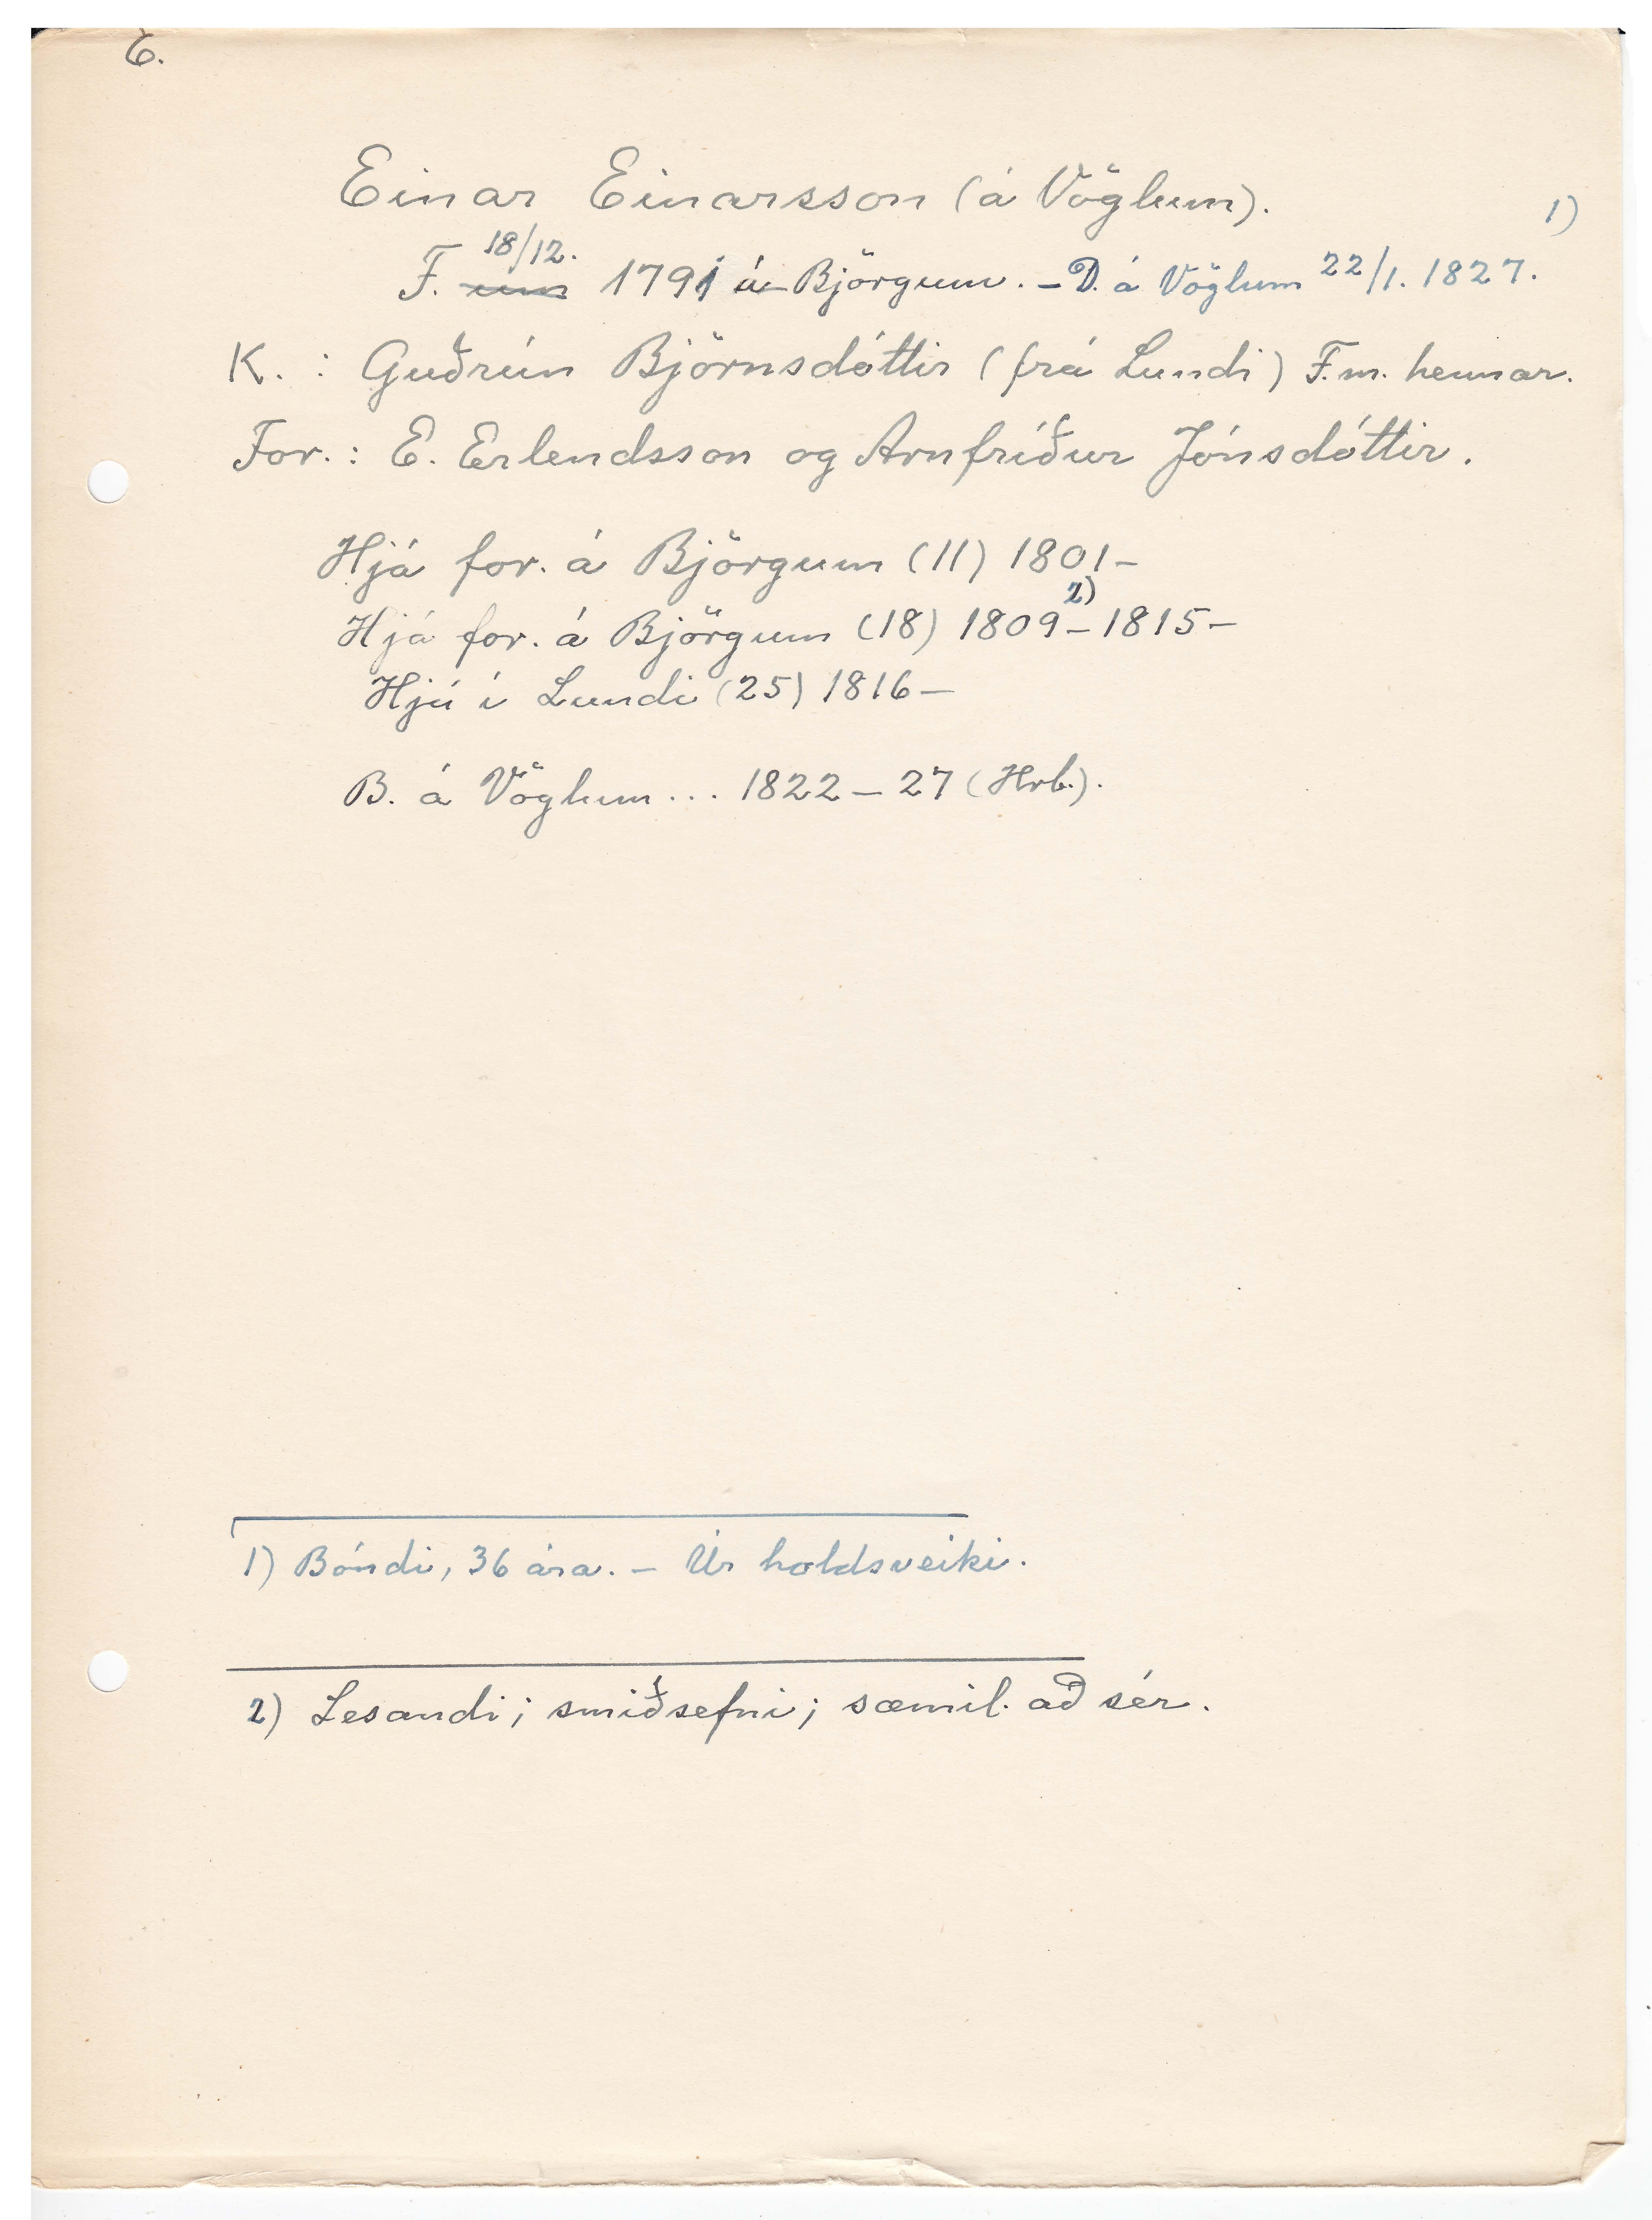 E.
Einar Einarsson (á Vöglum).
18/12.
F. um 1791 á Björgum. – D. á Vöglum 22/1. 1827. 1)
K. : Guðrún Björnsdóttir (frá Lundi) F.m. hennar.
For. : E. Erlendsson og Arnfríður Jónsdóttir.
Hjá for. á Björgum (11) 1801–
Hjá for. á Björgum (18) 1809 2) – 1815 –
Hjú í Lundi (25) 1816 –
B. á Vöglum ... 1822 – 27 (Hrb.).
1) Bóndi, 36 ára. – Úr holdsveiki.
2) Lesandi; smiðsefni; sæmil. að sér.